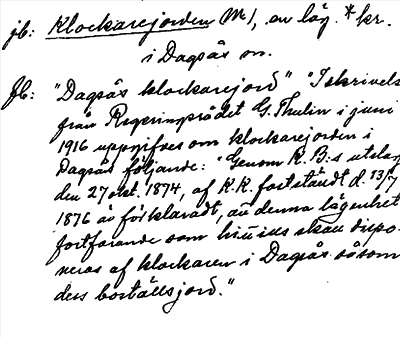 jb: Klockarejorden M 1, en läg. * kr.
i Dagsås sn.
fb: "Dagsås klockarejord" "I skrivels
från Regeringsrådet G. Thulin i juni
1916 uppgifves om klockarejorden i
Dagsås följande: "Genom K. B:s utslag
den 27 okt. 1874, af K. K. fastställdt d. 13/7
1876 är förklaradt, att denna lägenhet
fortfarande som hittills skall dispo-
neras af klockaren i Dagsås såsom
dess boställsjord."